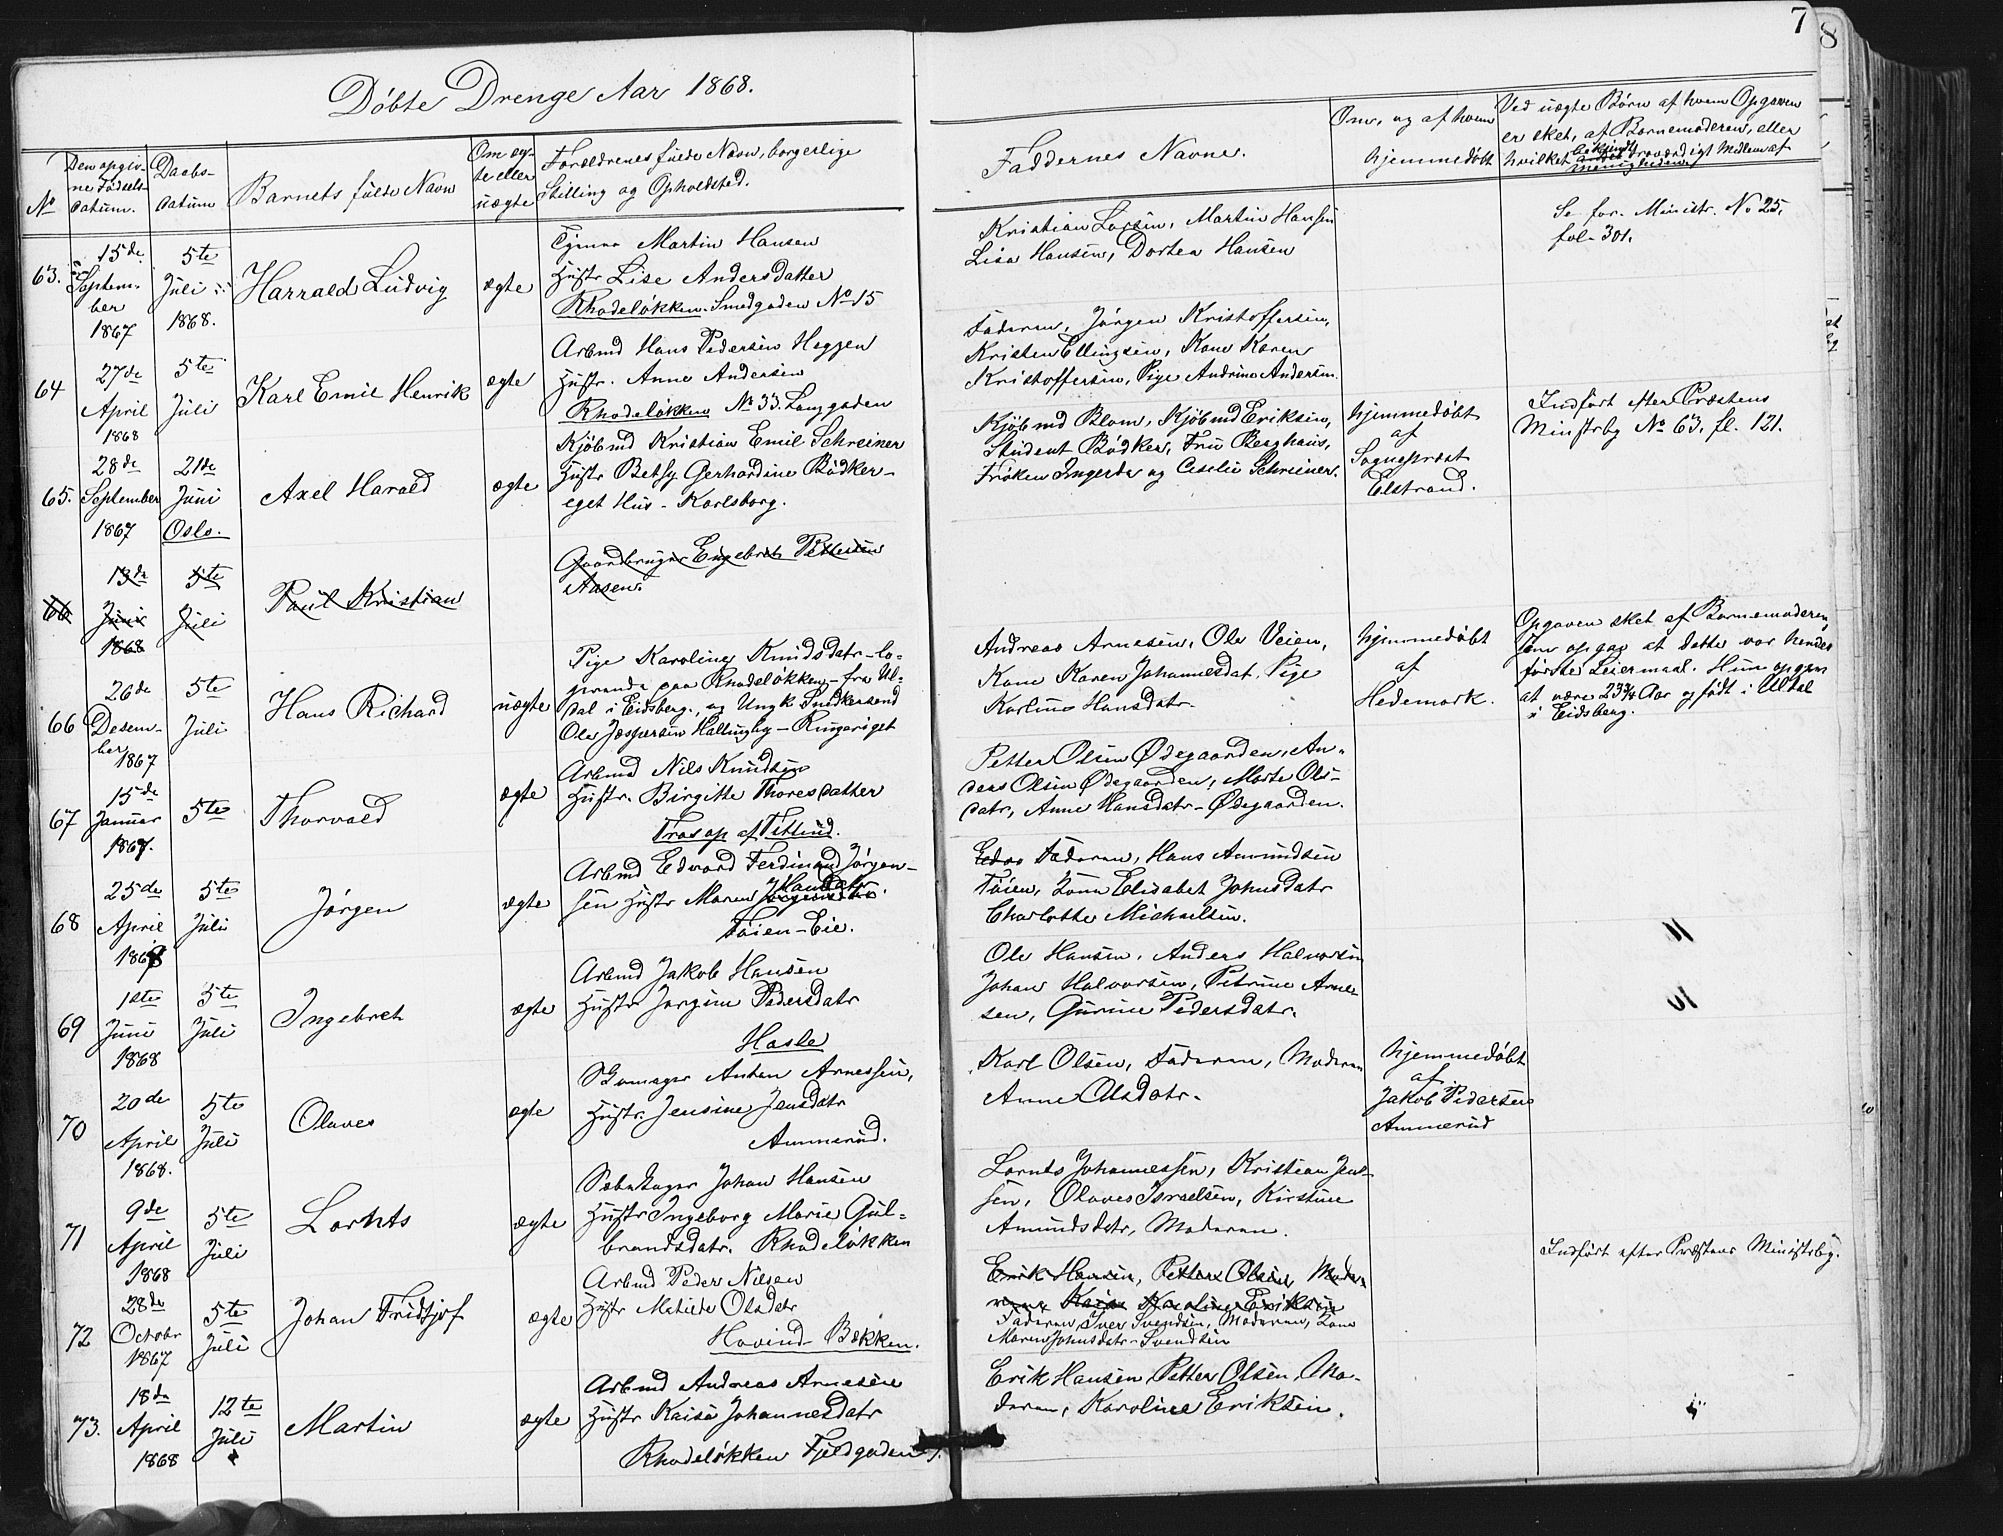 7
8
Döbte Drenge Aar 1868.
No
Den opgiv-
ne Födsels-
datum.
Daabs-
datum
Barnets fulde Navn
Om æg-
te eller
uægte
Forældrenes fulde Navn, borgerlige
Stilling og Opholdsted.
Faddernes Navne.
Om, og af hvem
hjemmedöbt
Ved uægte Börn af hvem Opgaven
er sket, af Barnemoderen, eller
hvilket andet troværdigt Medlem af
Menigheden.
63.
15de
Septem-
ber
1867
5te
Juli
1868.
Harrald Ludvig
ægte
Martin Hansen
Hustr Lise Andersdatter
Rhodelökken. Smedgaden No 15
Kristian Larsen, Martin Hansen
Lisa Hansen, Dortea Hansen
Se for. Ministr. No 25,
fol. 301.
64
27de
April
1868
5te
Juli
Karl Emil Henrik
ægte
Arbmd Hans Pedersen Heggen
Hustr. Anne Andersen
Rhodelökken No 33. Langgaden
Faderen, Jörgen Kristoffersen,
Kristen Ellingsen, Kone Karen
Kristoffersen, Pige Andrine Andersen.
65.
28de
September
1867
21de
Juni
Oslo.
Axel Harald
ægte
Kjöbmd Kristian Emil Schreiner
Hustr Betsy Gerhardine Bödker-
eget Hus - Karlsborg.
Kjöbmd Blom, Kjöbmd Eriksen,
Student Bödker, Fru Berghaus,
Fröken Ingerda og Cecelie Schreiner.
hjemmedöbt
af
Sogneprest
Elstrand.
Indfört efter Præstens
Minstrbg No 63, fl. 121.
66
13de
Juni
1868
5te
Juli
Paul Kristian
Gaardbruger Engebret Pettersen
Aasen.
66
26de
Desem-
ber
1867
5te
Juli
Hans Richard
uægte
Pige Karoline Knudsdatr - lo-
gerende paa Rhodelökken - fra Ul-
dal i Eidsberg., og Ungk Snedkersvend
Ole Jespersen Hallingby - Ringeriget
Andreas Arnesen, Ole Veien,
Kone Karen Johannesdat. Pige
Karline Hansdatr.
hjemmedöbt
af
Hedemark.
Opgaven sket af Barnemoderen,
som opgav at dette var hendes
förste Leiermaal. Hun opgav
at være 23¾ Aar og födt i Uldal
i Eidsberg.
67
15de
Januar
1867.
5te
Thorvald
ægte
Arbmd Nils Knudsen
Hustr. Birgitte Thoresdatter
Trosop af Tittrud.
Petter Olsen Ödegaarden, An-
ders Olsen Ödegaarden, Marte Ols-
datr, Anne Hansdatr - Ödegaarden.
68
25de
April
1868
5te
Juli
Jörgen
ægte
Arbmd Edvard Ferdinand Jörgen-
sen Hustr Maren Hansdatr
Töien - Eie.
Faderen, Hans Amundsen
Töien, Kone Elisabet Johnsdatr
Charlotte Michaelsen.
69
1ste
Juni
1868
5te
Juli
Ingebret
ægte
Arbmd Jakob Hansen
Hustr Jorgine Pedersdatr
Hasle
Ole Hansen, Anders Halvorsen
Johan Halvorsen, Petrine Arne-
sen, Gurine Pedersdatr.
70
20de
April
1868.
5te
Juli
Olaves
ægte
Anton Arnessen,
Hustr. Jensine Jensdatr
Ammerud.
Karl Olsen, Faderen, Moderen
Anne Olsdatr.
hjemmedöbt
af
Jakob Pedersen
Ammerud
71
9de
April
1868
5te
Juli
Lorents
ægte
Johan Hansen
Hustr Ingeborg Marie Gul-
brandsdatr. Rhodelökken
Lornts Johannessen, Kristian Jens-
sen, Olaves Israelsen, Kirstine
Amundsdatr, Moderen.
72
28de
Octobr
1867
5te
Juli
Johan Fridtjof
ægte
Arbmd Peder Nilsen
Hustr Matilde Olsdatr
Hovind - Bekken.
Erik Hansen, Petter Olsen, Mode-
ren, Kaisa Karoline Eriksen
Faderen, Iver Svendsen, Moderen, Kone
Maren Johnsdatr - Svendsen
Indfört efter Præstens Ministrbg.
73.
18de
April
1868
12te
Juli
Martin
ægte
Arbmd Andreas Arnesen
Hustr Kaisa Johannesdatr
Rhodelökken Fjeldgaden 1.
Erik Hansen, Petter Olsen, Mo-
deren, Karoline Eriksen.